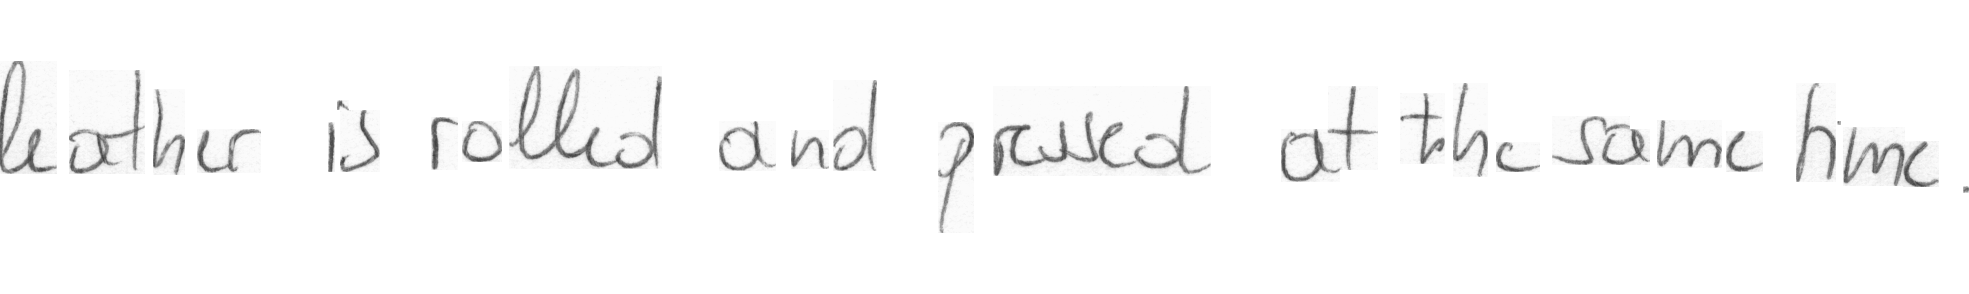 leather is rolled and pressed at the same time.